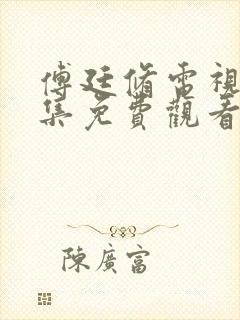 傅廷脩電視
集免費觀看
陳廣富